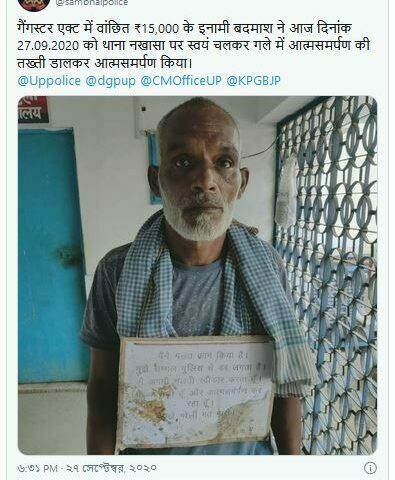 @sambhalpolice
गैंगस्टर एक्ट में वांछित ₹15,000 के इनामी बदमाश ने आज दिनांक
27.09.2020 को थाना नखासा पर स्वयं चलकर गले में आत्मसमर्पण की
तख्ती डालकर आत्मसमर्पण किया।
@Uppolice @dgpup @CMOfficeUP @KPGBJP
मैंने गलत काम किया है।
मुझे सम्भल पुलिस से डर लगता है।
मैं अपनी गलती स्वीकार करता हूँ।
हूँ और आत्मसमर्पण कर
रहा हूँ।
गोली मत
৬:৩১ PM · ২৭ সেপ্টেম্বর, ২০২০